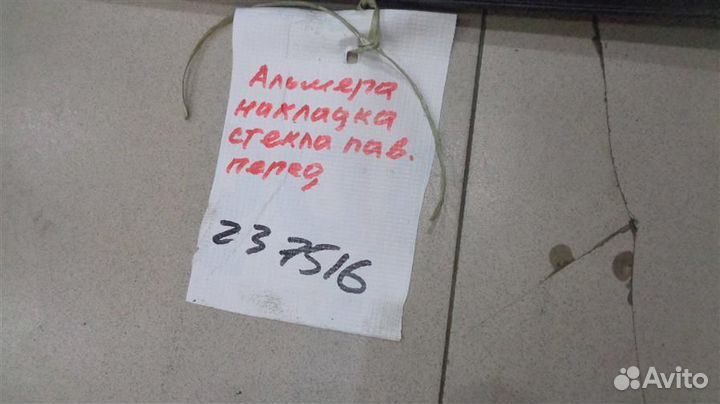 Альмера
накладка
стекла пав.
перед
237516
Avito